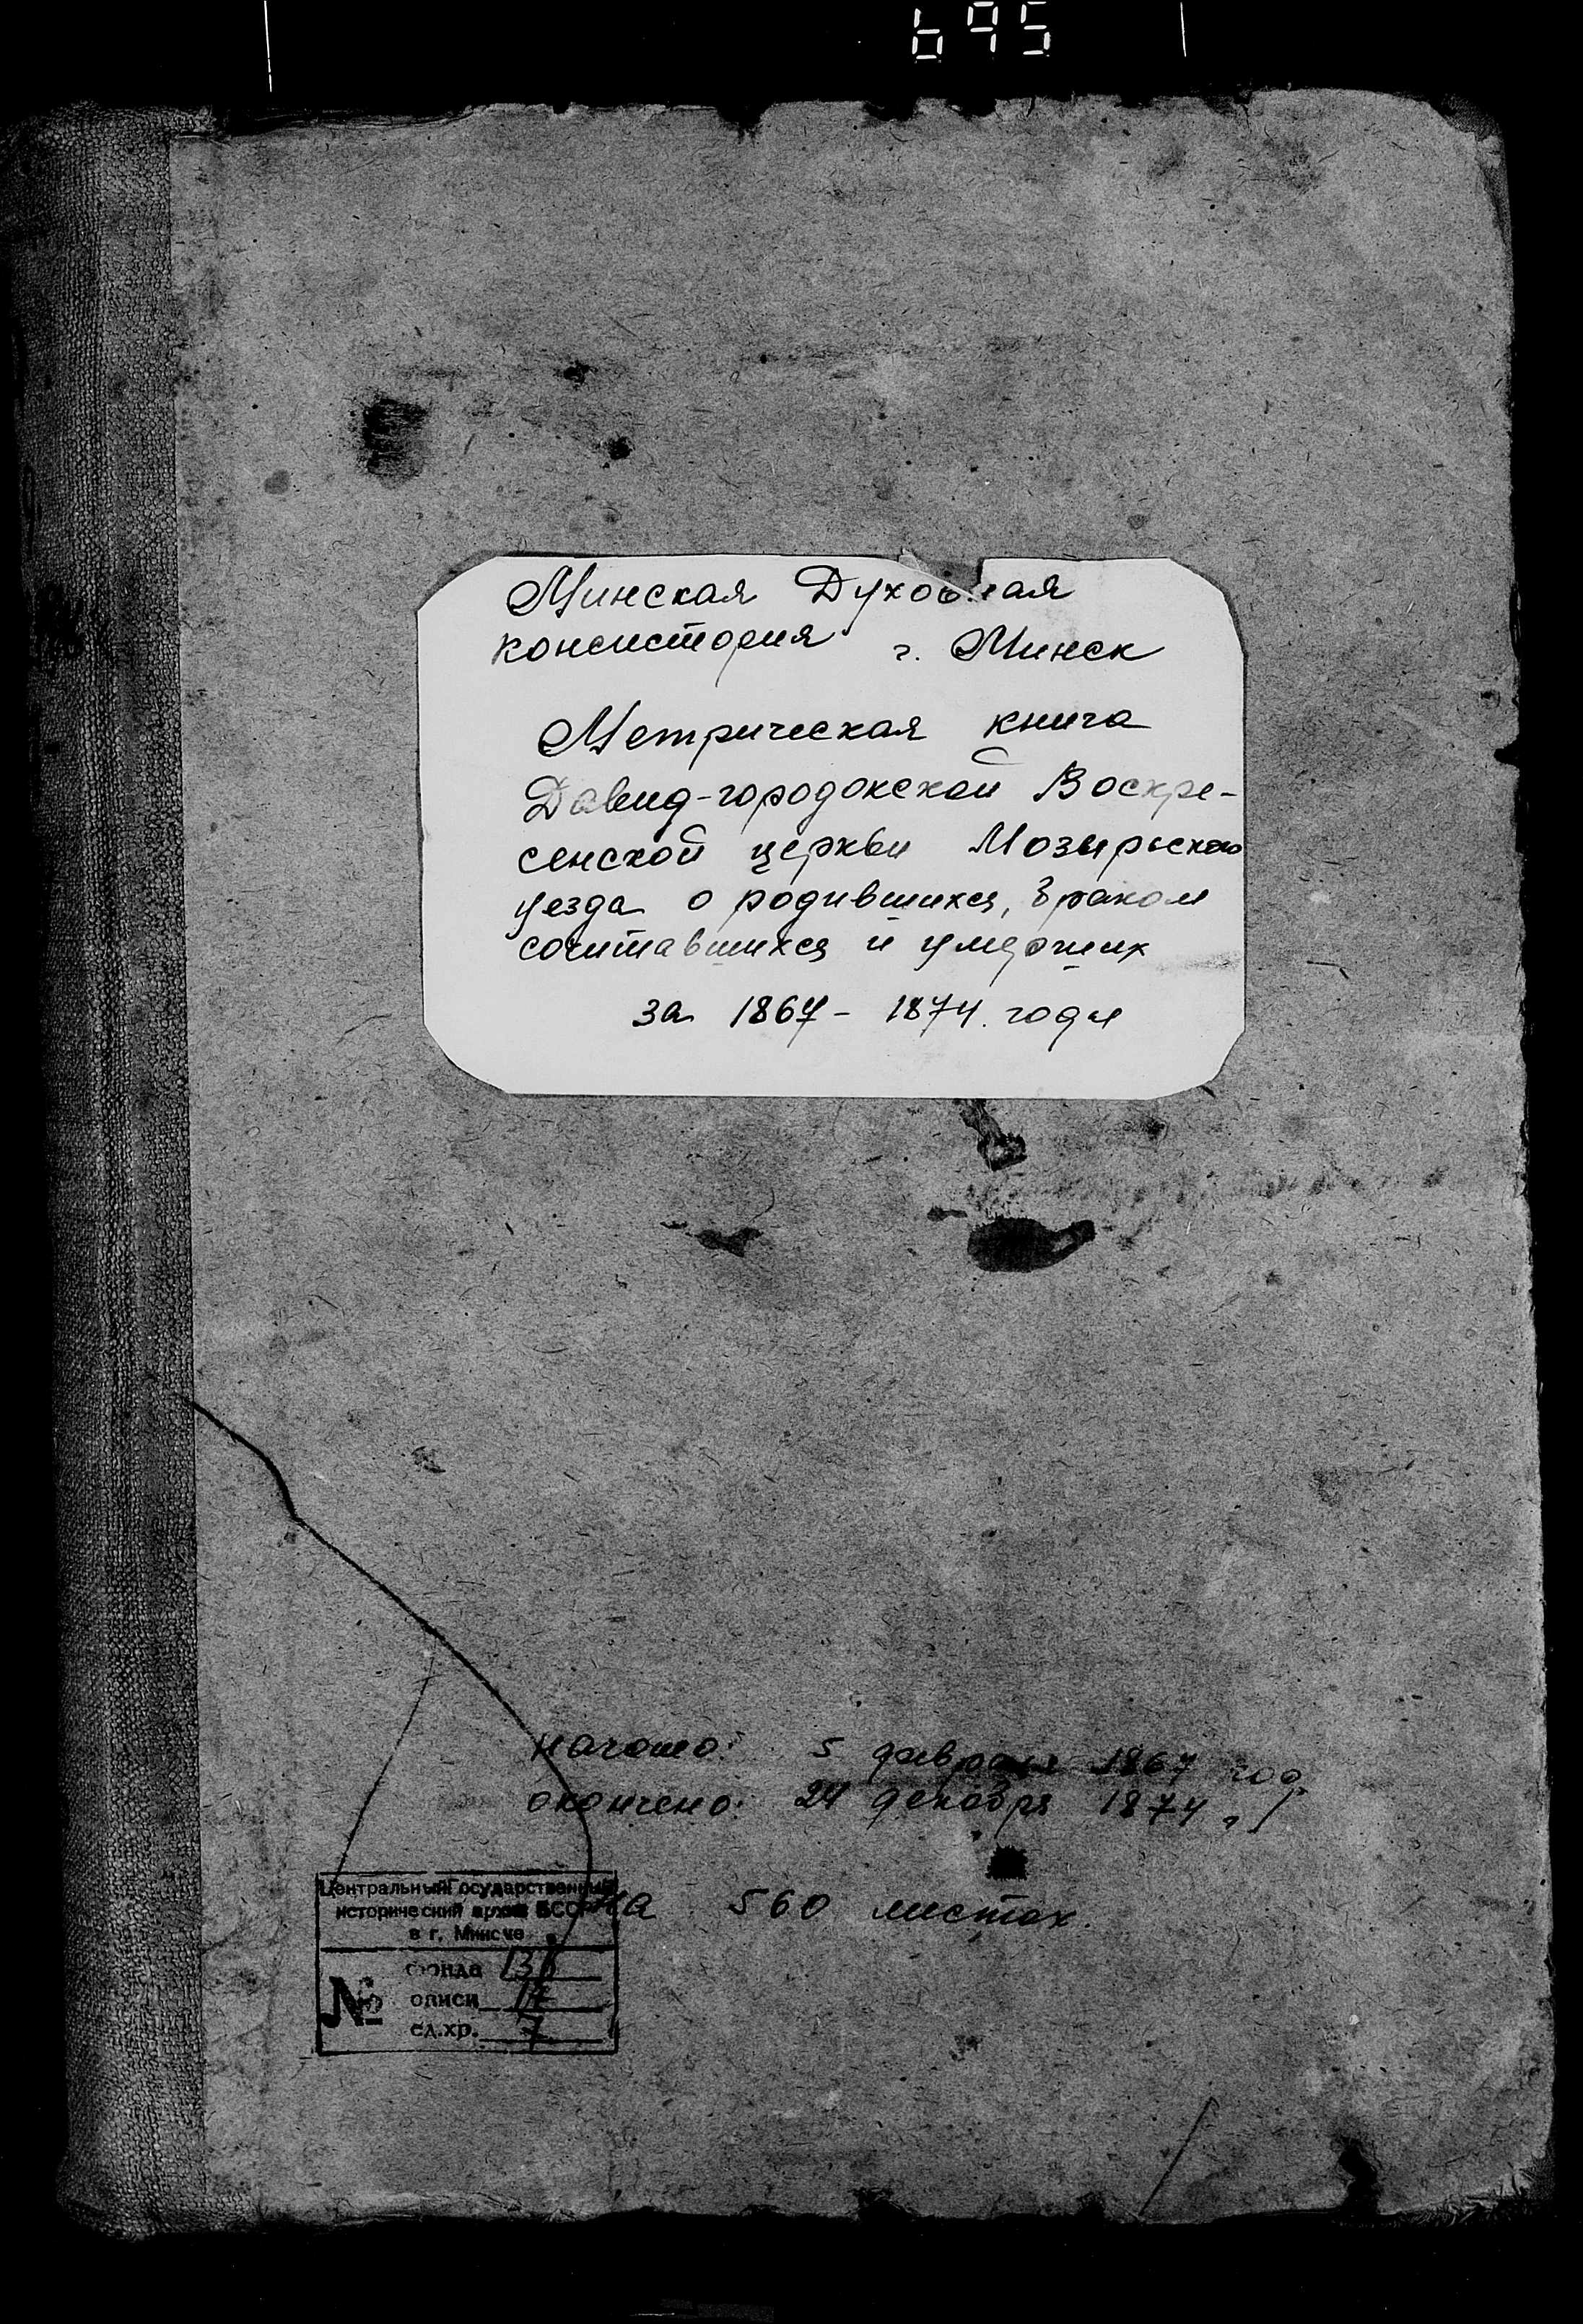 695
Минская Духовная
консистория г. Минск
Метрическая книга
Давид-городокской Воскре-
сенской церкви Мозырьского
уезда о родившихся, браком
сочитавшихся и умерших
за 1867 - 1874 годы
начато: 5 февраля 1867 год
окончено: 24 декабря 1874 г.
на 560 листах.
Центральный Государственный
исторический архив БССР
в г. Минске
№ фонда 136
описи
ед.хр. 7